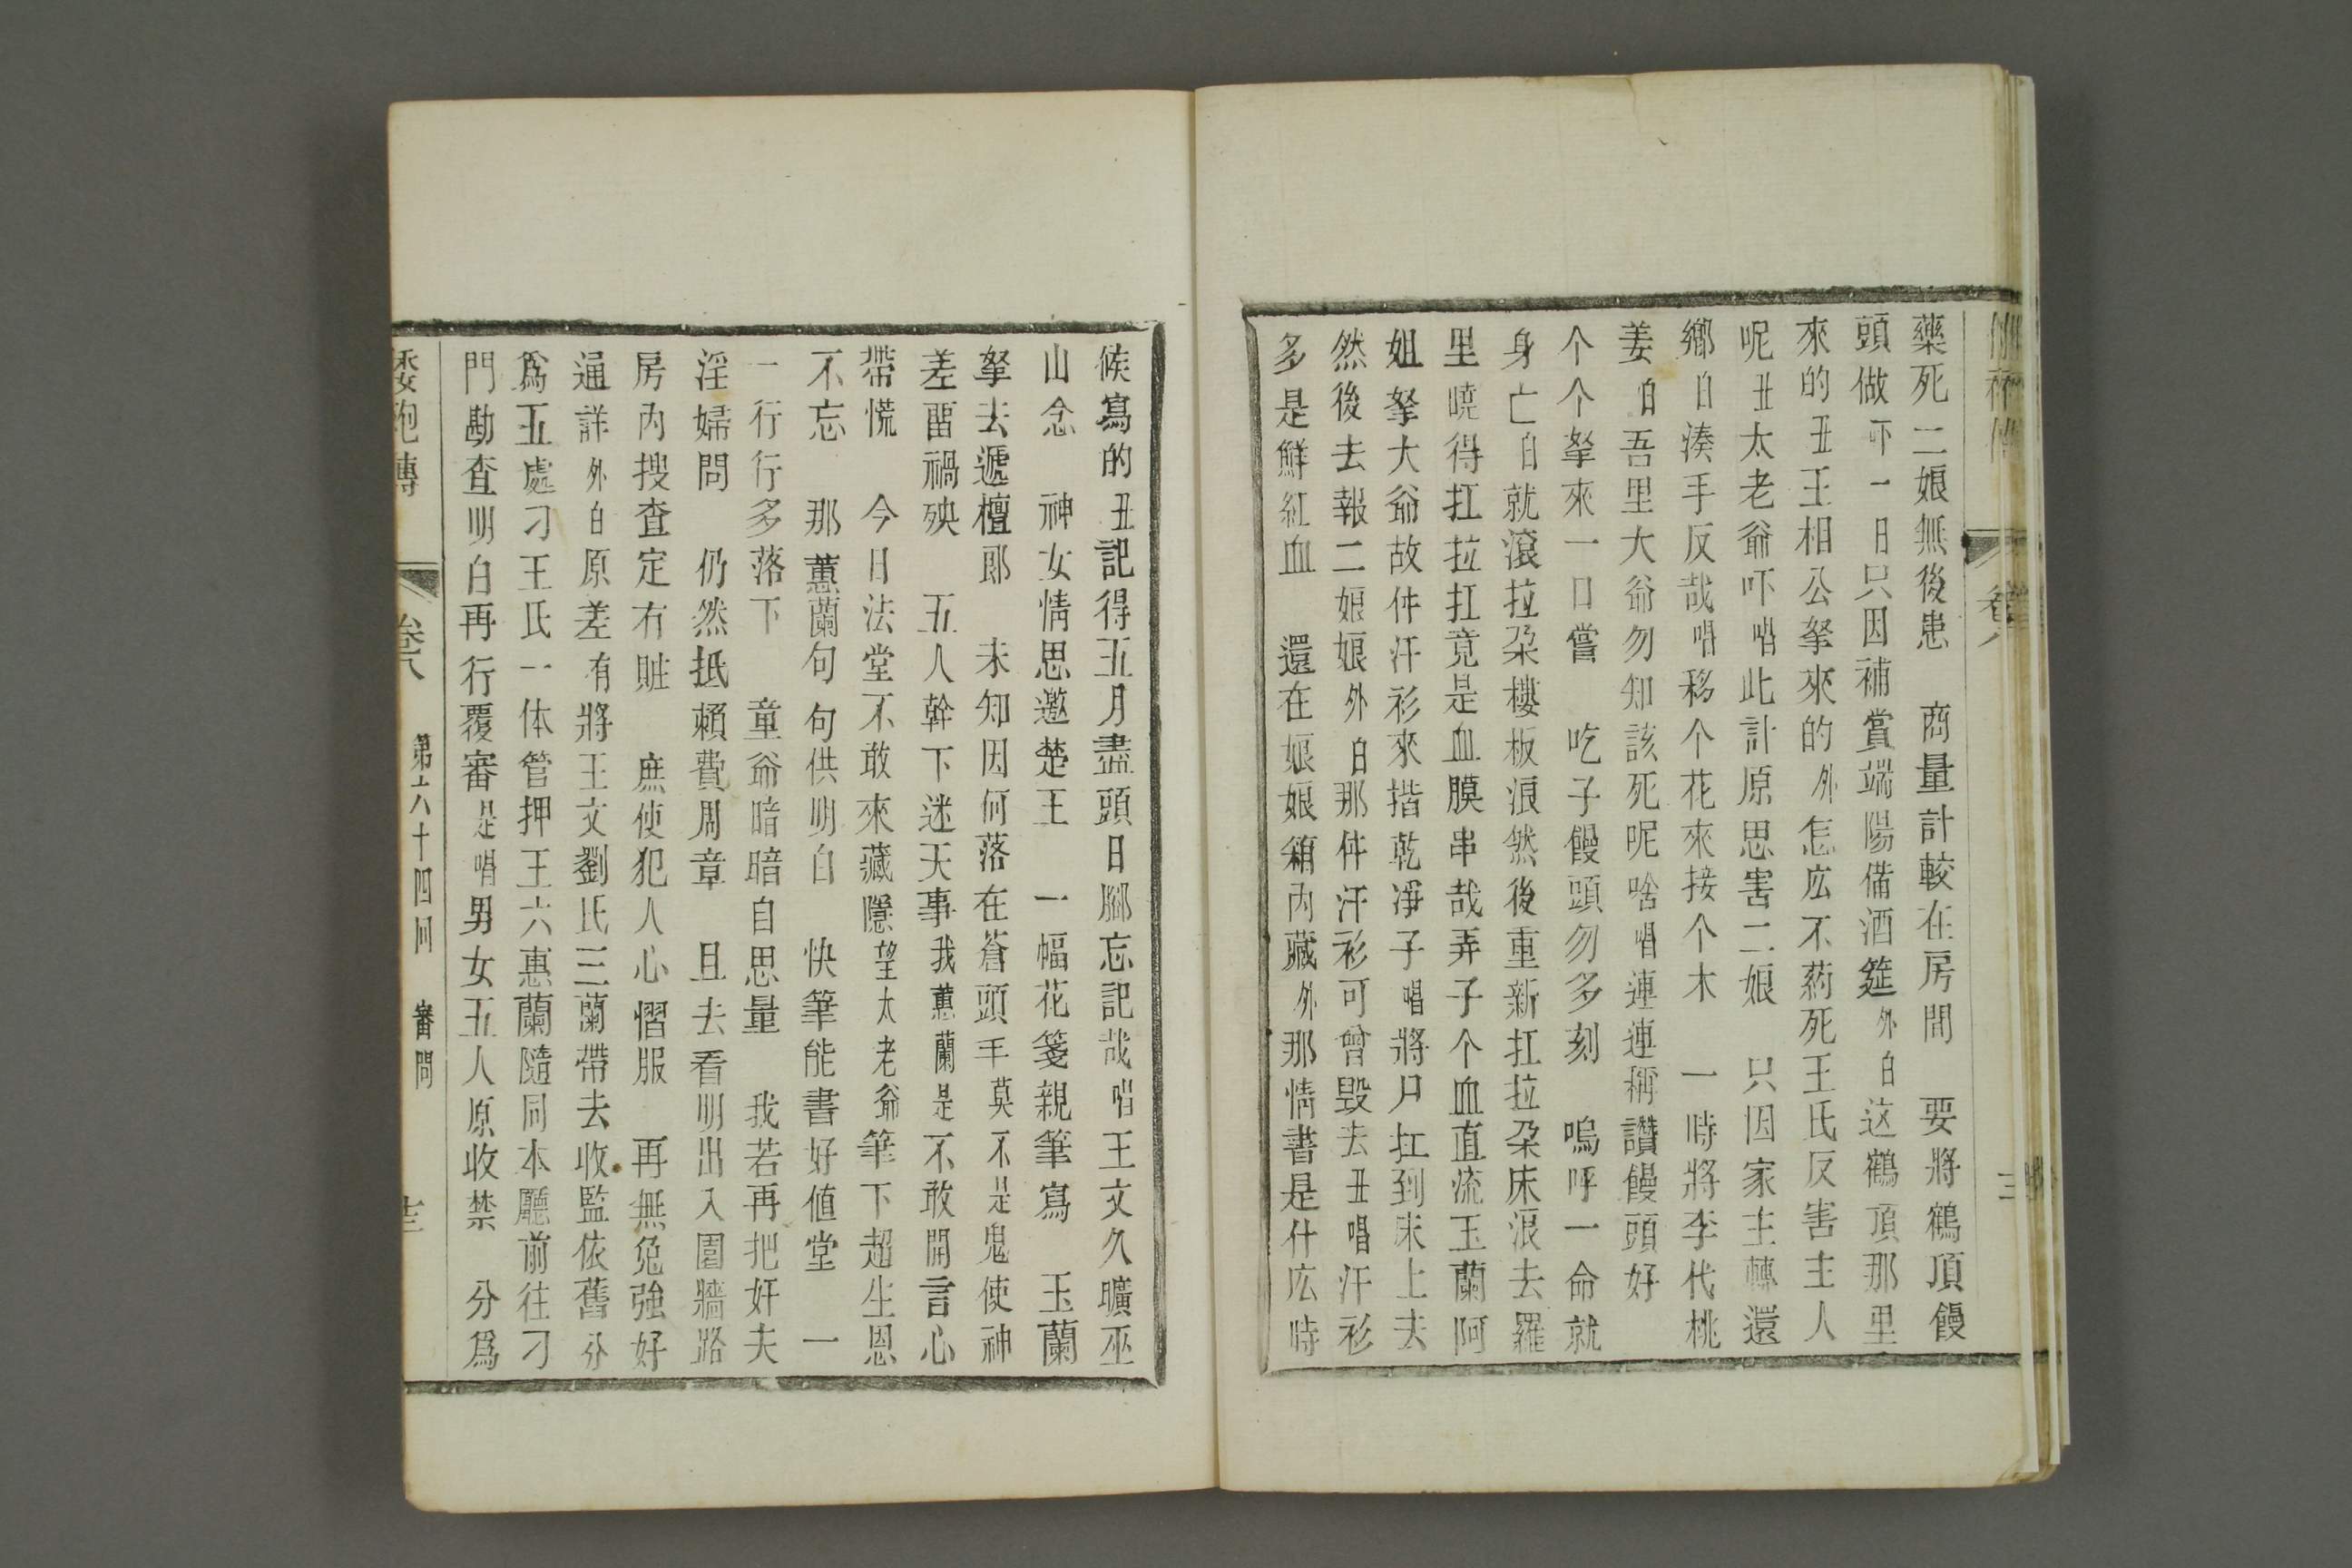 藥死二娘無後患　商量計較在房間　要將鶴頂饅
頭做吓一日只因補賞端陽備酒筵外白这鶴頂那里
來的丑王相公拏來的外怎庅不葯死王氏反害主人
呢丑太老爺吓唱此計原思害二娘　只因家主轉還
鄉白湊手反哉唱移个花來接个木　一時將李代桃
姜白吾里大爺勿知該死呢啥唱連連稱讚饅頭好
个个拏來一口嘗　吃子饅頭勿多刻　嗚呼一命就
身亡白就滾拉朶樓板浪然後重新扛拉朶床浪去羅
里曉得扛拉扛竟是血膜串哉弄子个血直流玉蘭阿
姐拏大爺故件汗衫來揩乾凈子唱將尸扛到床上去
然後去報二娘娘外白那件汗衫可曾毀去丑唱汗衫
多是鮮紅血　還在娘娘箱內藏外那情書是什庅時
候寫的丑記得五月盡頭日腳忘記哉唱王文久曠巫
山念　神女情思邀楚王　一幅花箋親筆寫　玉蘭
拏去遞檀郎　未知因何落在蒼頭手莫不是鬼使神
差畱禍殃　五人幹下迷天事我蕙蘭是不敢開言心
帶慌　今日法堂不敢來藏隱望太老爺筆下超生恩
不忘　那蕙蘭句句供明白　快筆能書好值堂　一
一行行多落下　童爺暗暗自思量　我若再把奸夫
淫婦問　仍然抵賴費周章　且去看明出入園牆路
房內搜查定有賍　庶使犯人心慴服　再無免強好
通詳外白原差有將王文劉氏三蘭帶去收監依舊分
爲五處刁王氏一体管押王六惠蘭隨同本廳前往刁
門勘查明白再行覆審是唱男女五人原收禁　分爲
倭袍傳　卷八　第六十四回　審問　十三